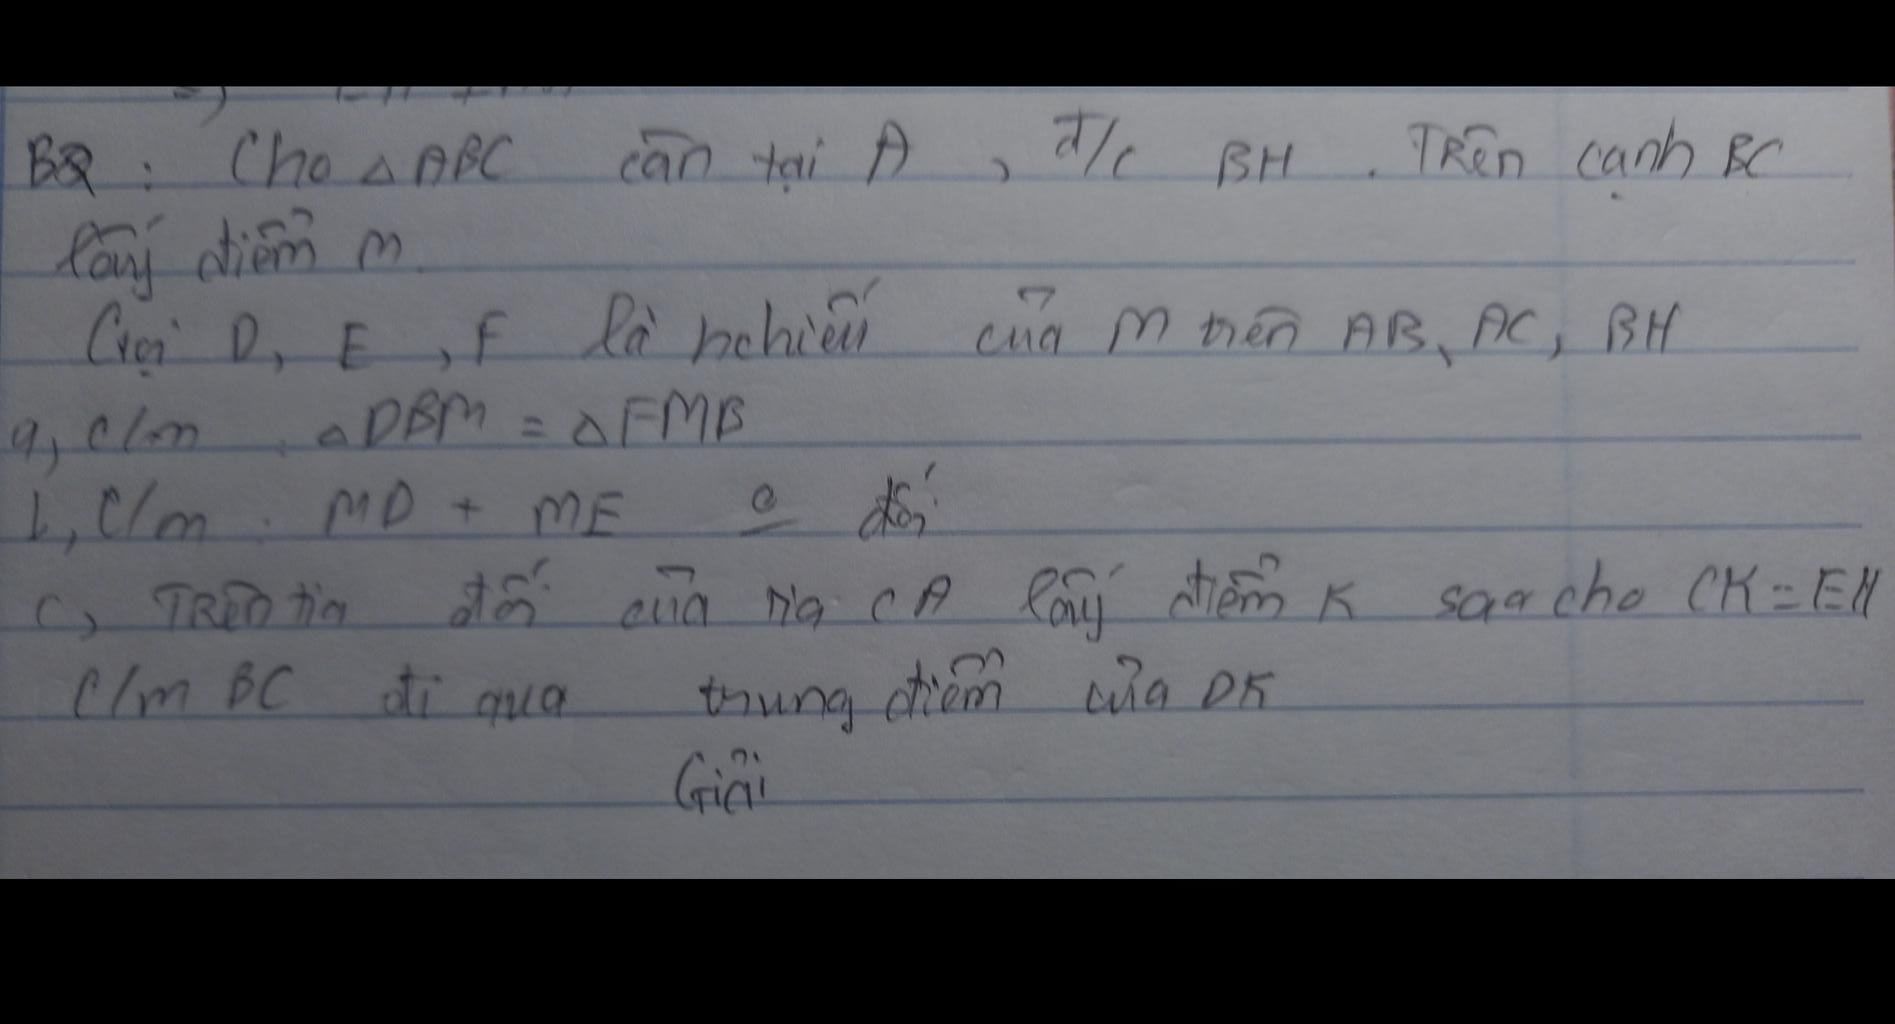 B2: Cho △ABC cân tại A, đ/c BH. Trên cạnh BC
lấy điểm M.
Gọi D, E, F là hchiếu của M trên AB, AC, BH
a, c/m △DBM = △FMB
b, C/m: MD + ME o đổi
c, Trên tia đối của tia CA lấy điểm K sao cho CK = EH
C/m BC đi qua trung điểm của DK
Giải